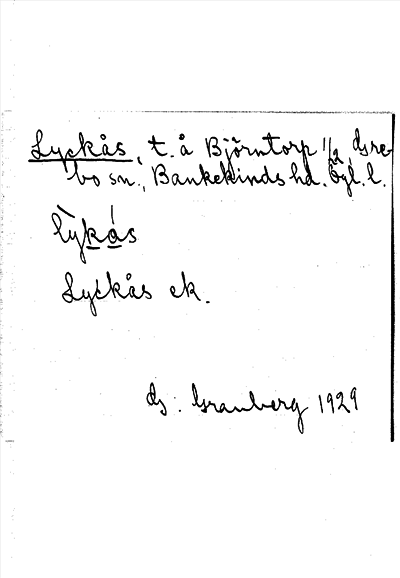 Lyckås, t. å Björntorp 1/2, Gsre-
bo sn., Bankekinds hd. Ögl. l.
lỳkás
Lyckås ek.
G. Granberg 1929